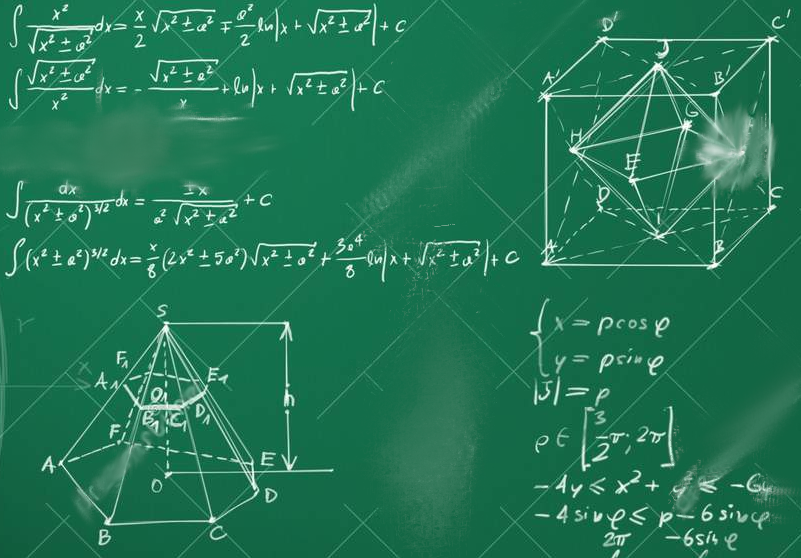 ∫ x²/√(x² ± a²) dx = x/2 √(x² ± a²) ∓ a²/2 ln|x + √(x² ± a²)| + C
∫ √(x² ± a²)/x² dx = - √(x² ± a²)/x + ln|x + √(x² ± a²)| + C
∫ dx/(x² ± a²)^3/2 dx = ±x/a² √(x² ± a²) + C
∫ (x² ± a²)^3/2 dx = x/8 (2x² ± 5a²) √(x² ± a²) + 3a⁴/8 ln|x + √(x² ± a²)| + C
D' C'
J
A' B'
G
H
E
D C
I
A B
S
F₁
A₁ E₁
O₁
B₁ C₁ D₁
h
F
A E
O D
B C
{ x = ρcosφ
y = ρsinφ
|J| = ρ
φ ∈ [3/2 π; 2π]
-4y ≤ x² + ≤ -6y
-4sinφ ≤ ρ - 6sinφ
2π -6sinφ